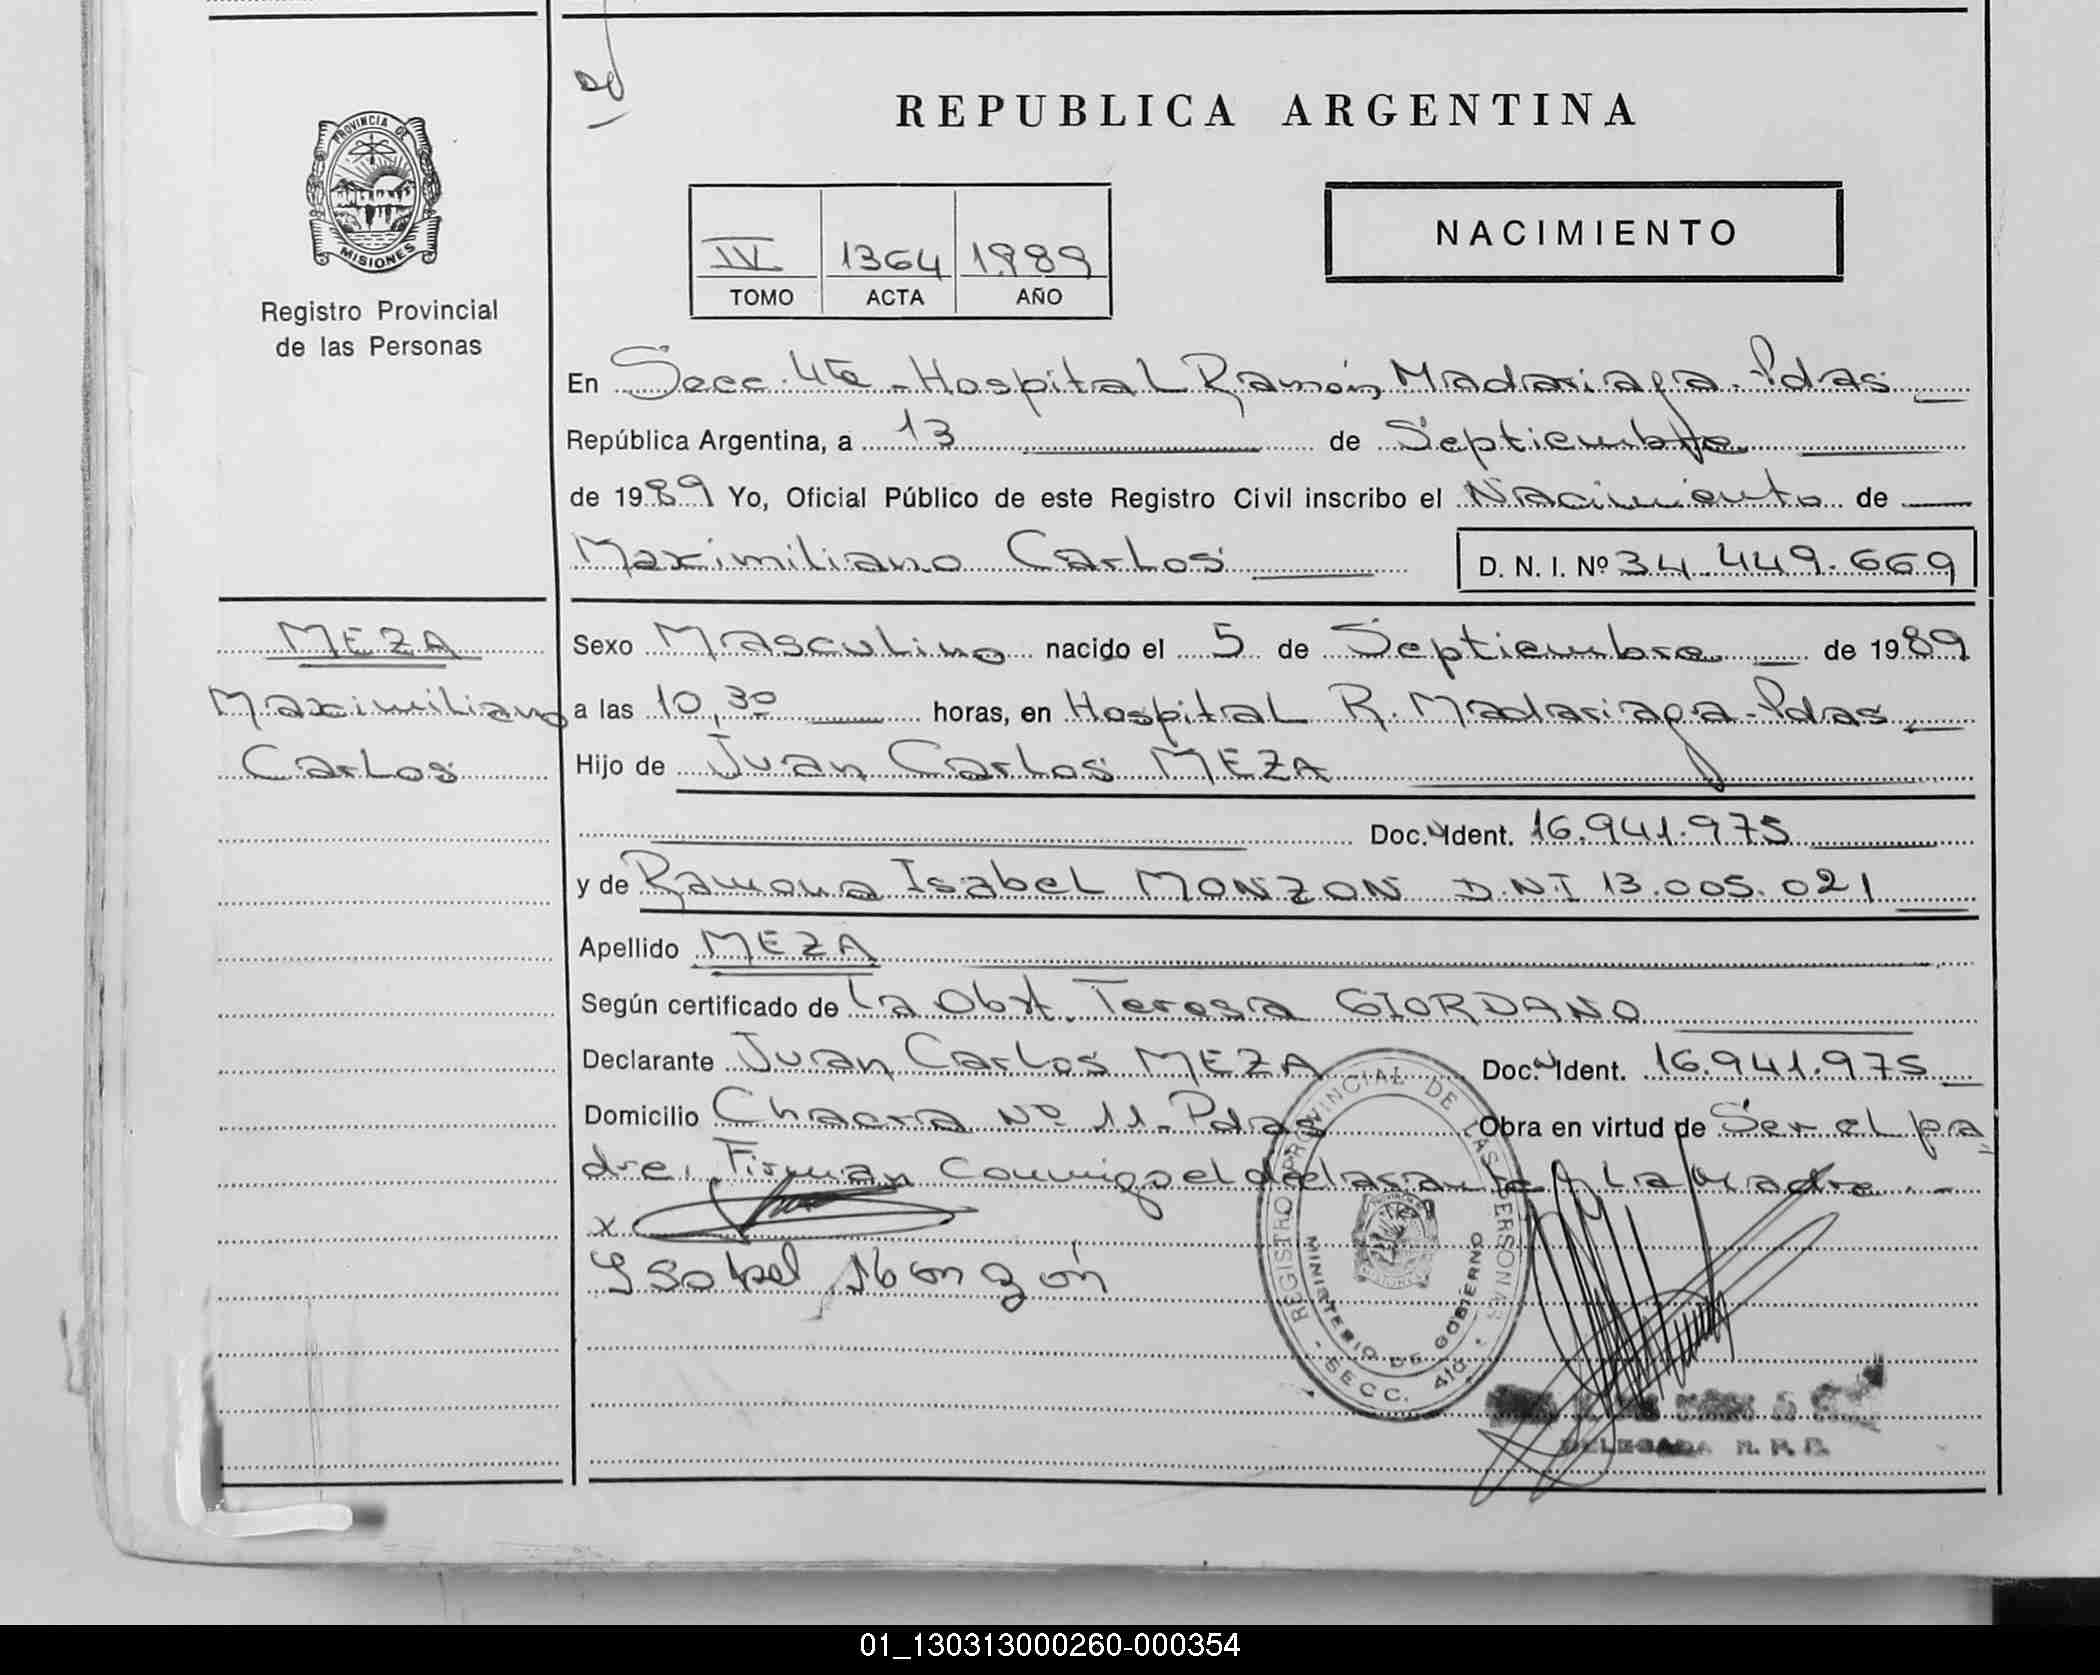 PROVINCIA DE
MISIONES
Registro Provincial
de las Personas
REPUBLICA ARGENTINA
NACIMIENTO
IV 1364 1989
TOMO ACTA AÑO
En Secc. 4ta - Hospital Ramón Madariaga - Pdas
República Argentina, a 13 de Septiembre
de 1989 Yo, Oficial Público de este Registro Civil inscribo el Nacimiento de
Maximiliano Carlos D. N. I. Nº 34.449.669
MEZA
Maximiliano
Carlos
Sexo Masculino nacido el 5 de Septiembre de 1989
a las 10,30 horas, en Hospital R. Madariaga - Pdas
Hijo de Juan Carlos MEZA
Doc. Ident. 16.941.975
y de Ramona Isabel MONZON D.N.I 13.005.021
Apellido MEZA
Según certificado de La Obst. Teresa GIORDANO
Declarante Juan Carlos MEZA Doc. Ident. 16.941.975
Domicilio Chacra Nº 11 - Pdas Obra en virtud de Ser el pa
dre. Firman conmigo el declarante y la madre. -
x
Ysabel Monzón
REGISTRO PROVINCIAL DE LAS PERSONAS
MINISTERIO DE GOBIERNO
- SECC. 4ta. -
DELEGADA R. P. P.
01_130313000260-000354